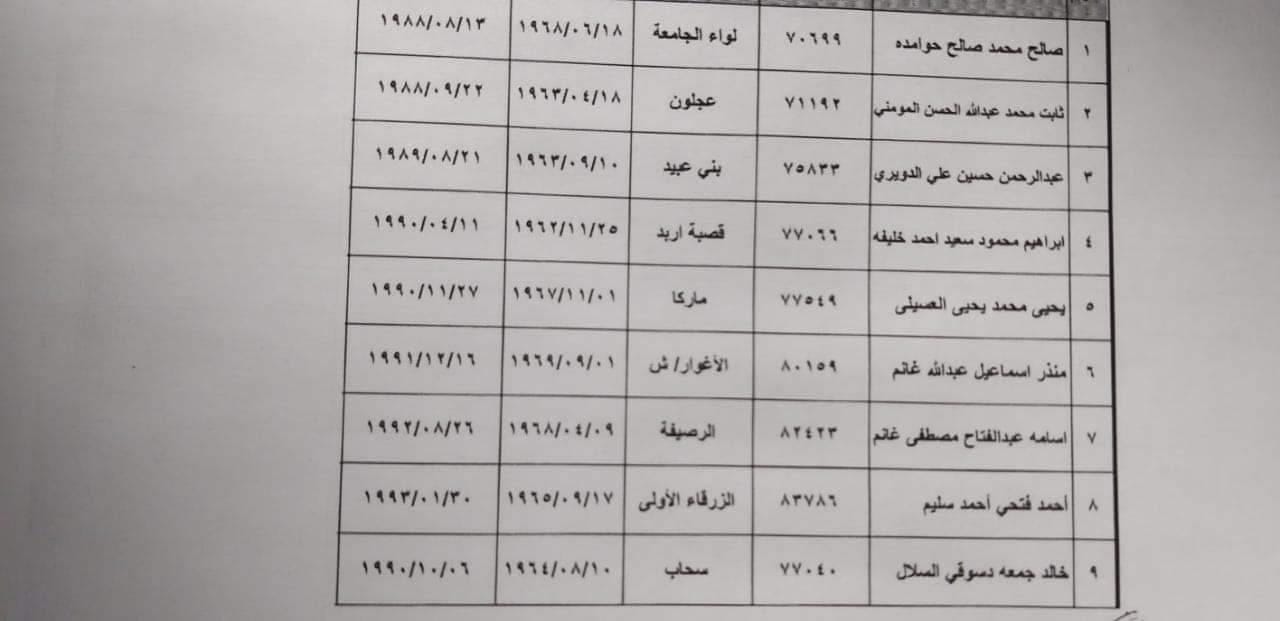 ١ صالح محمد صالح حوامده ٧٠٦٩٩ لواء الجامعة ١٩٦٨/٠٦/١٨ ١٩٨٨/٠٨/١٣
٢ ثابت محمد عبدالله الحسن المومني ٧١١٩٢ عجلون ١٩٦٣/٠٤/١٨ ١٩٨٨/٠٩/٢٢
٣ عبدالرحمن حسين علي الدويري ٧٥٨٣٣ بني عبيد ١٩٦٣/٠٩/١٠ ١٩٨٩/٠٨/٢١
٤ ابراهيم محمود سعيد احمد خليفه ٧٧٠٦٦ قصبة اربد ١٩٦٢/١١/٢٥ ١٩٩٠/٠٤/١١
٥ يحيى محمد يحيى العسيلى ٧٧٥٤٩ ماركا ١٩٦٧/١١/٠١ ١٩٩٠/١١/٢٧
٦ منذر اسماعيل عبدالله غانم ٨٠١٥٩ الأغوار/ ش ١٩٦٩/٠٩/٠١ ١٩٩١/١٢/١٦
٧ اسامه عبدالفتاح مصطفى غانم ٨٢٤٢٣ الرصيفة ١٩٦٨/٠٤/٠٩ ١٩٩٢/٠٨/٢٦
٨ أحمد فتحي أحمد سليم ٨٣٧٨٦ الزرقاء الأولى ١٩٦٥/٠٩/١٧ ١٩٩٣/٠١/٣٠
٩ خالد جمعه دسوقي السلال ٧٧٠٤٠ سحاب ١٩٦٤/٠٨/١٠ ١٩٩٠/١٠/٠٦